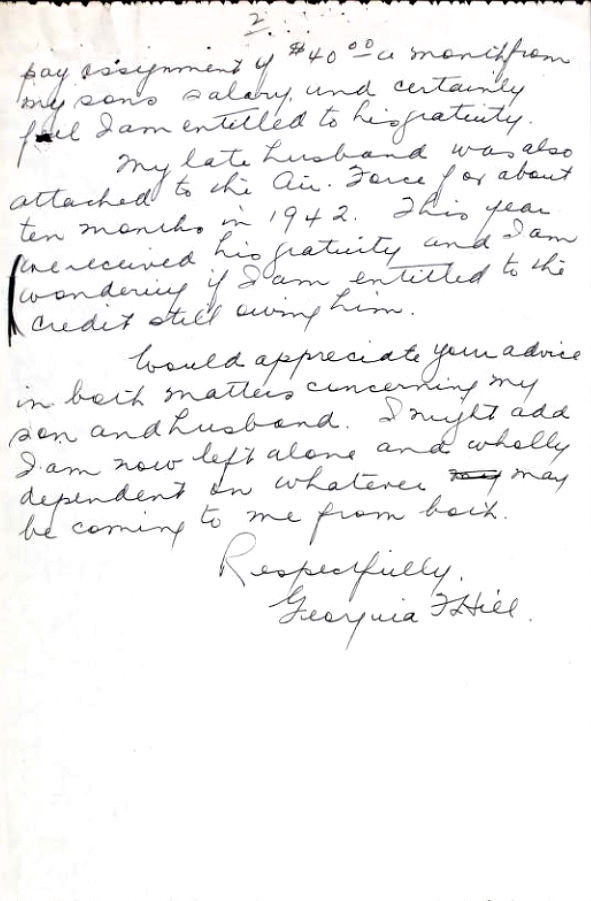 2
pay assignment of $40.00 a month from
my sons salary, and certainly
feel I am entitled to his gratuity.
My late husband was also
attached to the Air. Force for about
ten months in 1942. This year
we received his gratuity and I am
wondering if I am entitled to the
credit still owing him.
Would appreciate your advice
in both matters concerning my
son and husband. I might add
I am now left alone and wholly
dependent on whatever may
be coming to me from both.
Respectfully,
Georgina F Hill.